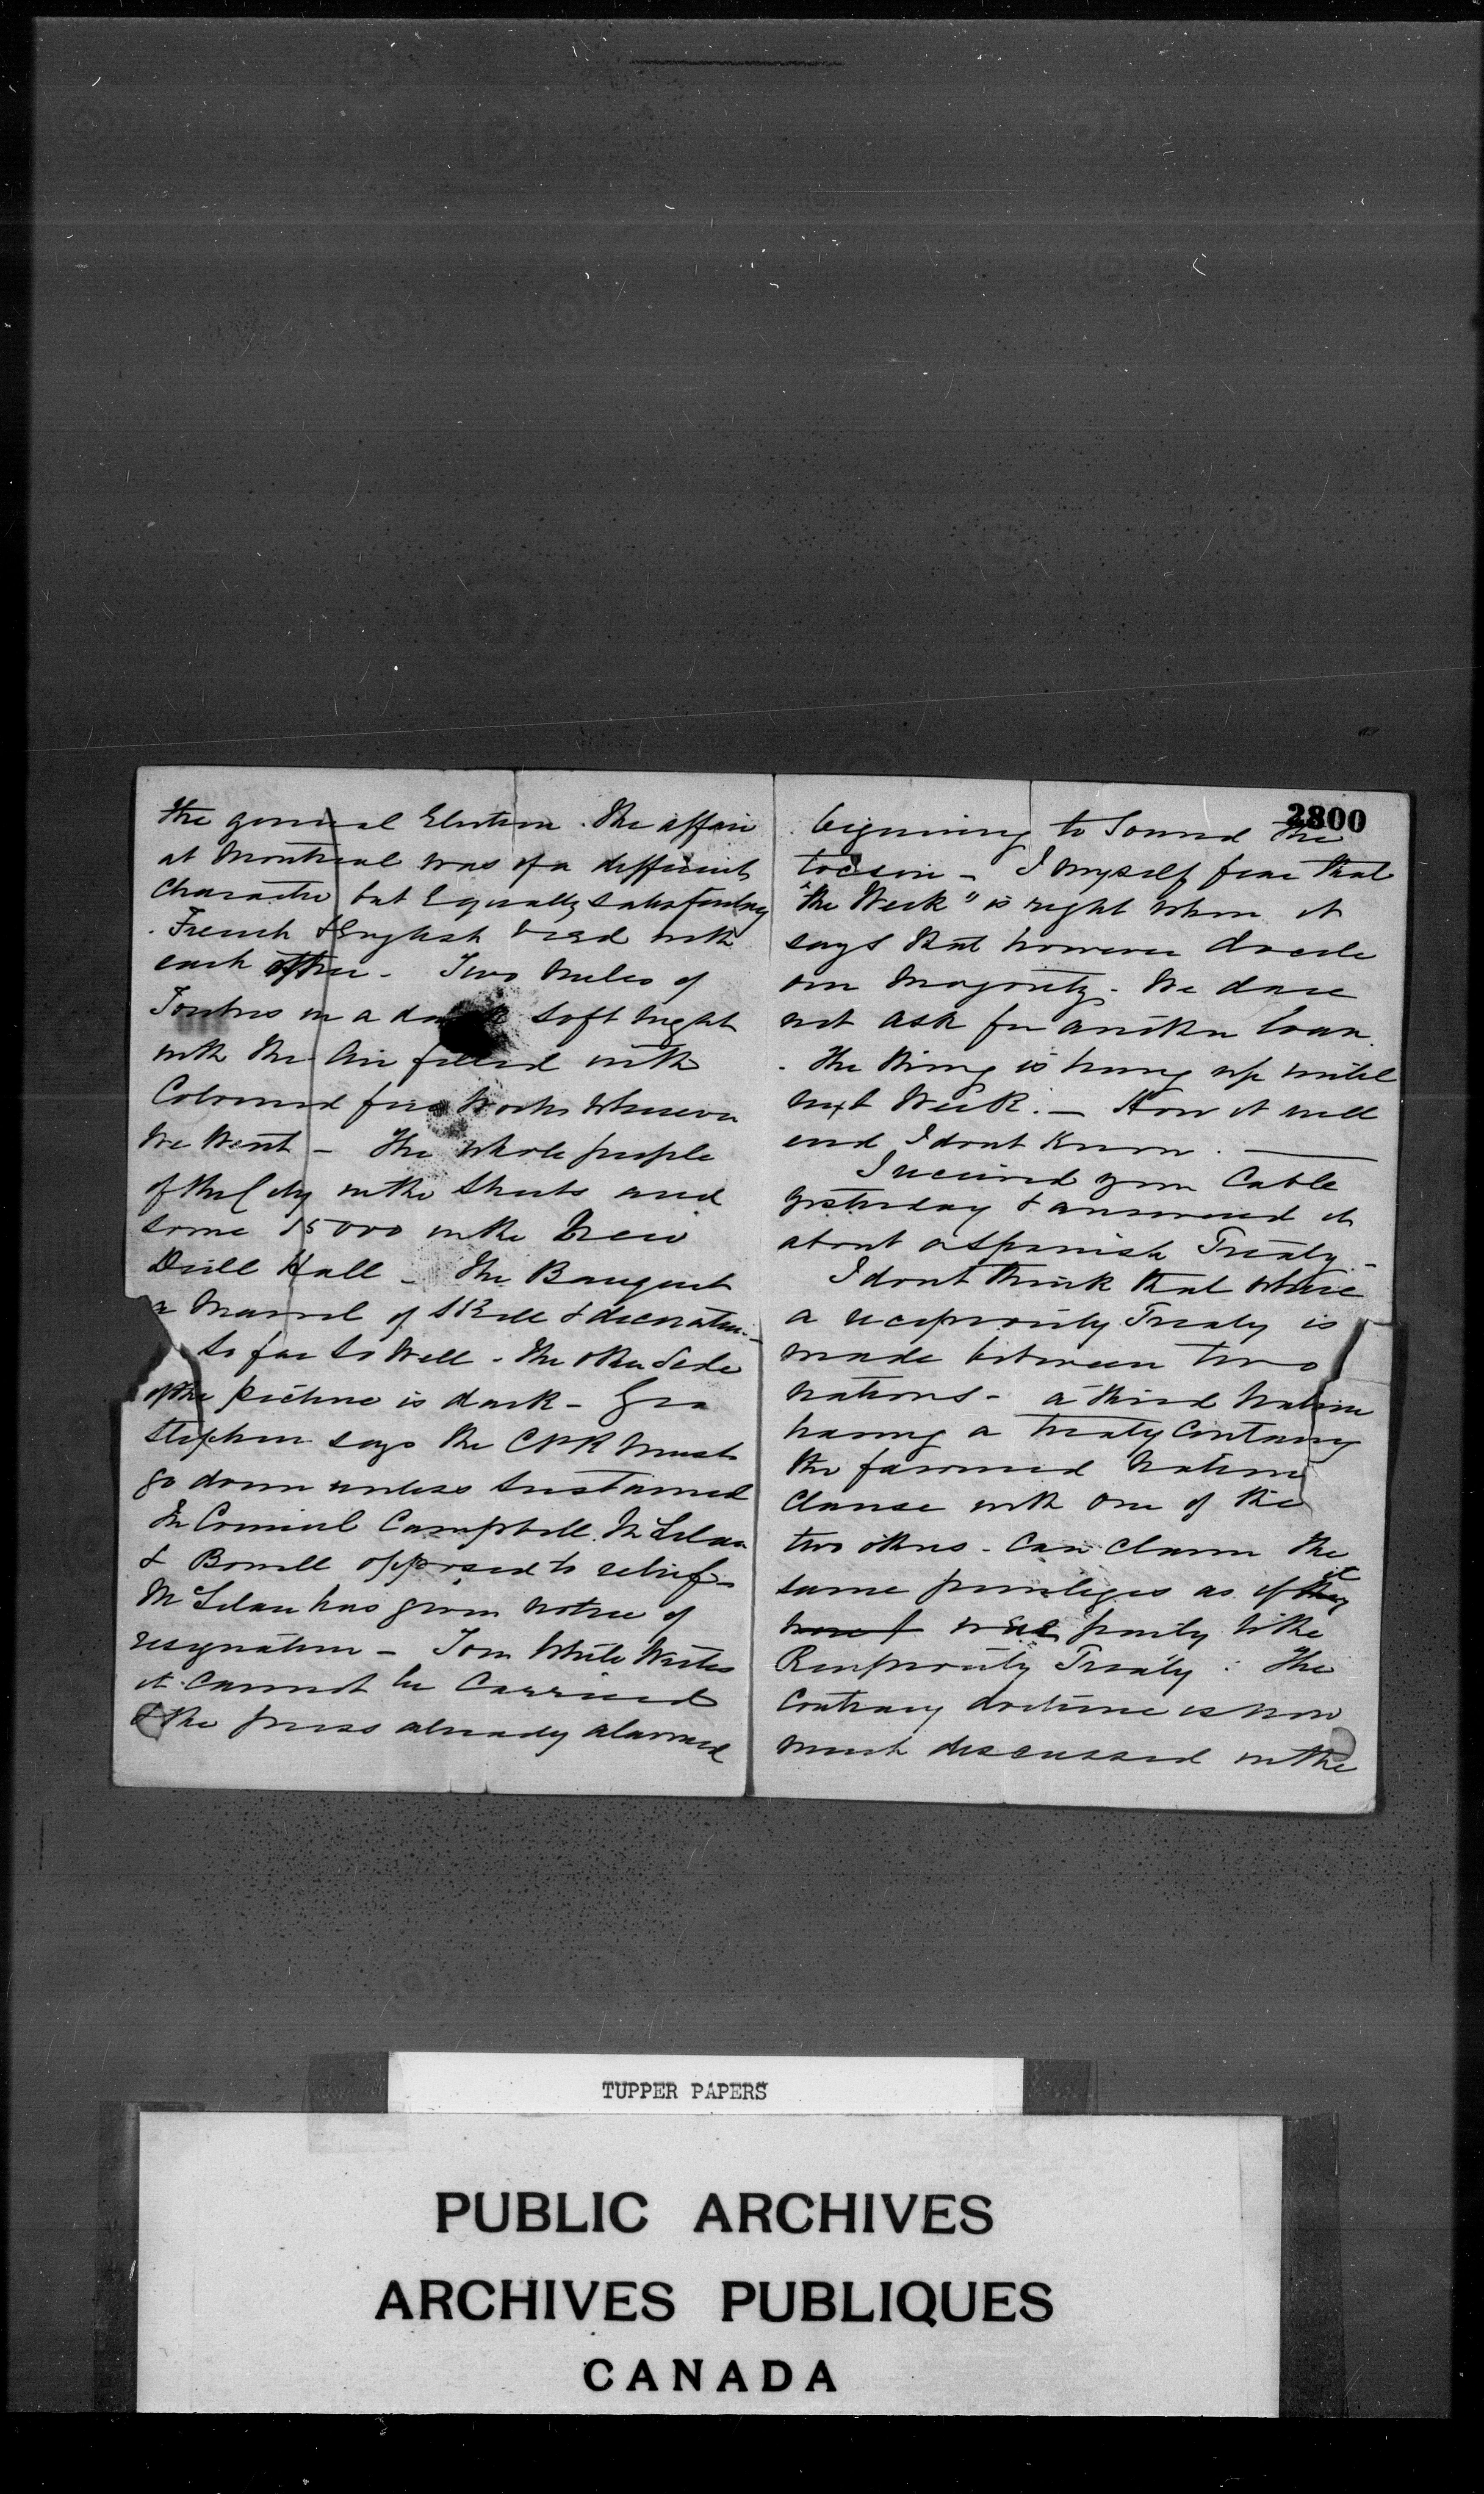 the general Election. The affair
at Montreal was of a different
character but Equally satisfactory
. French & English vied with
each other - Two Miles of
Torches in a dark soft Night
with the Air filled with
Coloured fire Works wherever
We Went - The whole people
of the City in the Streets and
some 15000 in the New
Drill Hall - The Banquet
a Marvel of Skill & decoration -
So far So Well - The other Side
of the picture is dark - Geo
Stephen says the CPR Must
go down unless Sustained
In Council Campbell. McLelan
& Bowell opposed to relief -
McLelan has given Notice of
resignation - Tom White Writes
it Cannot be Carried
& the press already alarmed
2800
beginning to Sound the
tocsin - I myself fear that
"the Week" is right when it
says that however docile
our Majority - We dare
not ask for another loan.
- The thing is hung up until
next Week. - How it will
end I dont Know. -
I received your Cable
yesterday & answered it
about a Spanish Treaty -
I dont think that where
a reciprocity Treaty is
made between two
Nations - a third Nation
having a Treaty Containing
the favoured Nation
Clause with one of the
two others - Can Claim the
same privileges as if it they
were party to the
Reciprocity Treaty : The
Contrary doctrine is now
much discussed in the
TUPPER PAPERS
PUBLIC ARCHIVES
ARCHIVES PUBLIQUES
CANADA